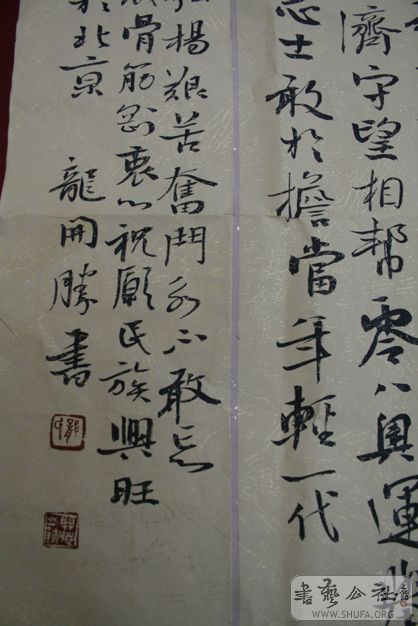 濟守望相幫零八奧運
志士敢於擔當年輕一代
揚艱苦奮鬥永不敢忘
骨筋劉衷心祝願民族興旺
於北京 龍開勝書
書藝公社
WWW.SHUFA.ORG